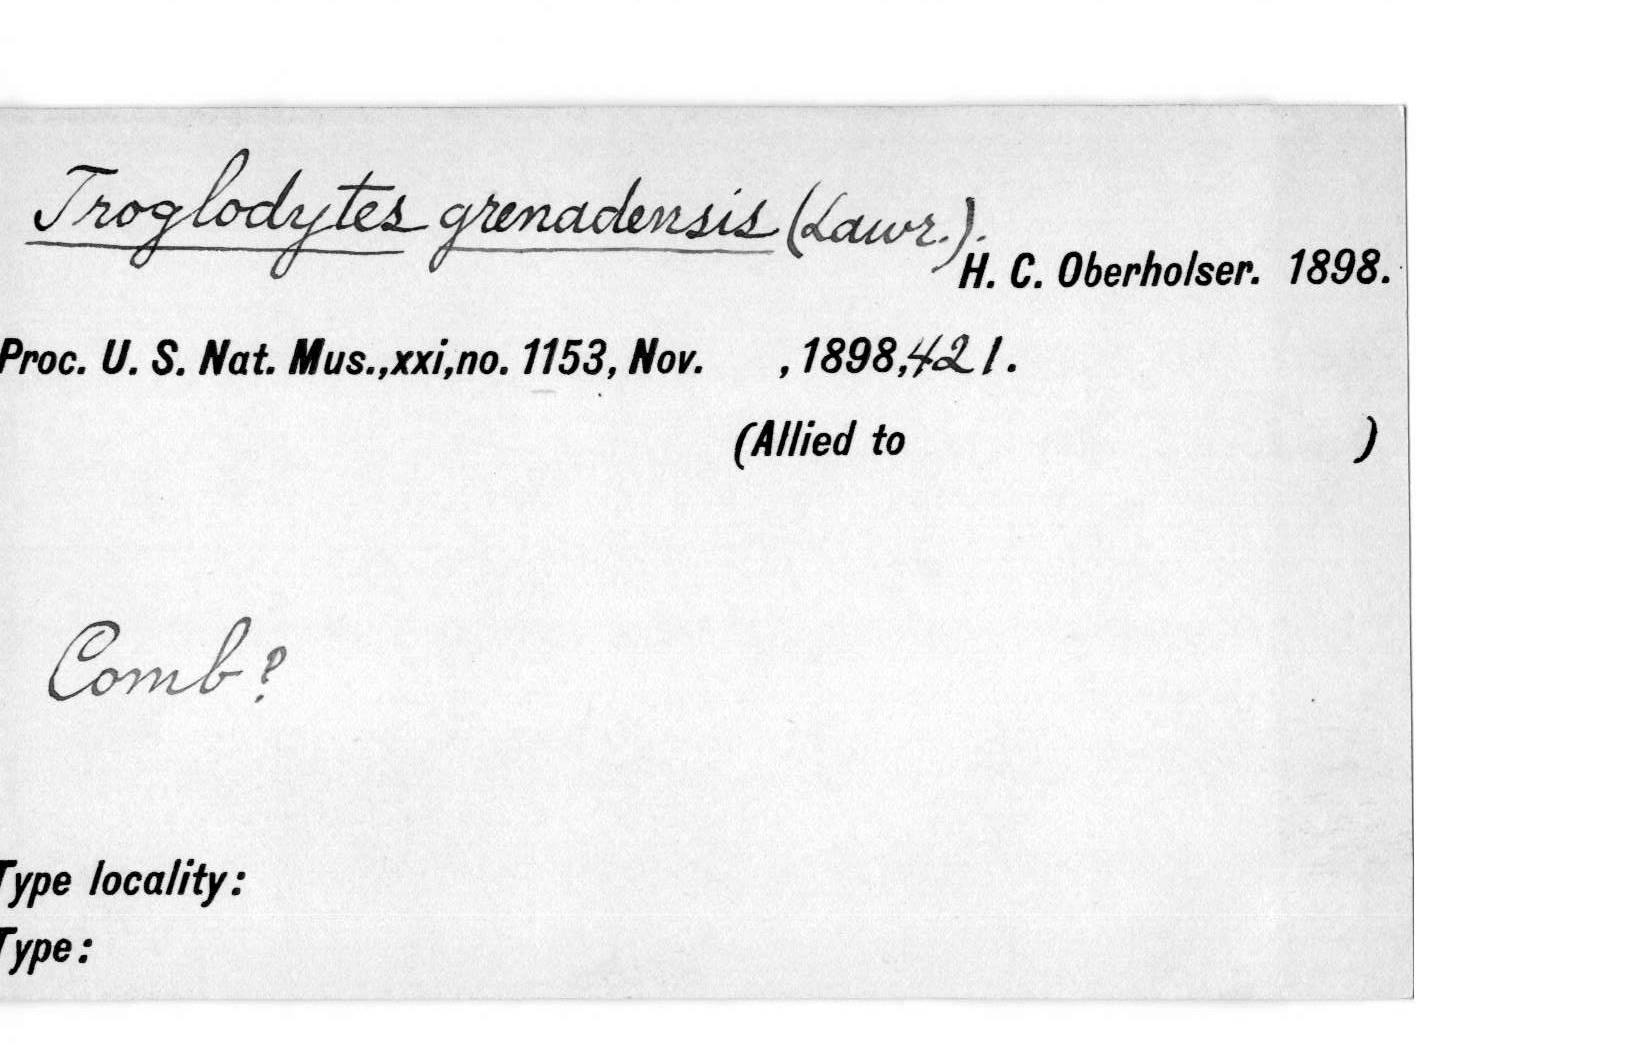 Troglodytes grenadensis (Lawr.).
H. C. Oberholser. 1898.
Proc. U. S. Nat. Mus.,xxi,no. 1153, Nov. , 1898,421.
(Allied to )
Comb?
Type locality:
Type: